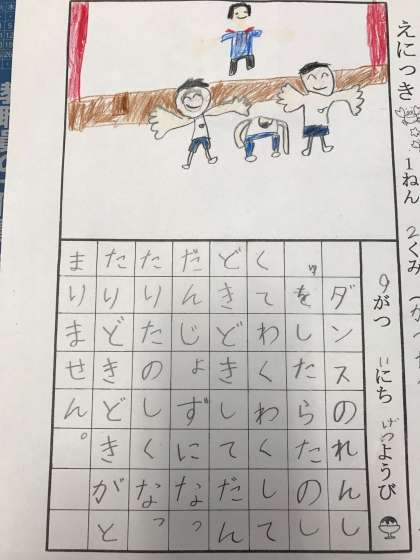 えにっき 1ねん 2くみ
9がつ にち げつようび
ダンスのれんし
ゅをしたらたのし
くてわくわくして
どきどきしてだん
だんじょずになっ
たりたのしくなっ
たりどきどきがと
まりません。